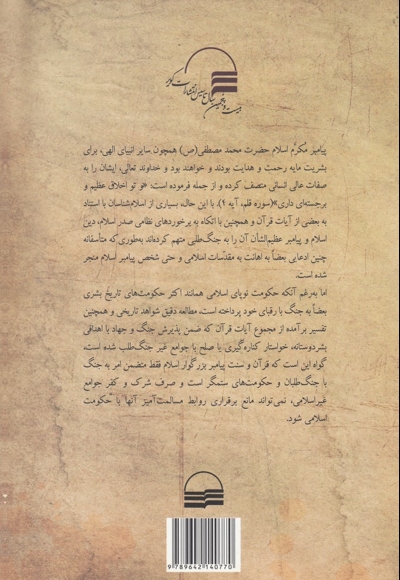 بیست و پنجمین سال تأسیس انتشارات کویر
پیامبر مکرّم اسلام حضرت محمد مصطفی(ص) همچون سایر انبیای الهی، برای
بشریت مایه رحمت و هدایت بودند و خواهند بود و خداوند تعالی، ایشان را به
صفات عالی انسانی متصف کرده و از جمله فرموده است: «و تو اخلاق عظیم و
برجسته‌ای داری»(سوره قلم، آیه ۴). با این حال، بسیاری از اسلام‌شناسان با استناد
به بعضی از آیات قرآن و همچنین با اتکاء به برخوردهای نظامی صدر اسلام، دین
اسلام و پیامبر عظیم‌الشأن آن را به جنگ‌طلبی متهم کرده‌اند به‌طوری‌که متأسفانه
چنین ادعایی بعضاً به اهانت به مقدّسات اسلامی و حتی شخص پیامبر اسلام منجر
شده است.
اما به‌رغم آنکه حکومت نوپای اسلامی همانند اکثر حکومت‌های تاریخ بشری
بعضاً به جنگ با رقبای خود پرداخته است، مطالعه دقیق شواهد تاریخی و همچنین
تفسیر برآمده از مجموع آیات قرآن که ضمن پذیرش جنگ و جهاد با اهدافی
بشردوستانه، خواستار کناره‌گیری یا صلح با جوامع غیر جنگ‌طلب شده است،
گواه این است که قرآن و سنت پیامبر بزرگوار اسلام فقط متضمن امر به جنگ
با جنگ‌طلبان و حکومت‌های ستمگر است و صرف شرک و کفر جوامع
غیراسلامی، نمی‌تواند مانع برقراری روابط مسالمت‌آمیز آنها با حکومت
اسلامی شود.
9 789642 140770